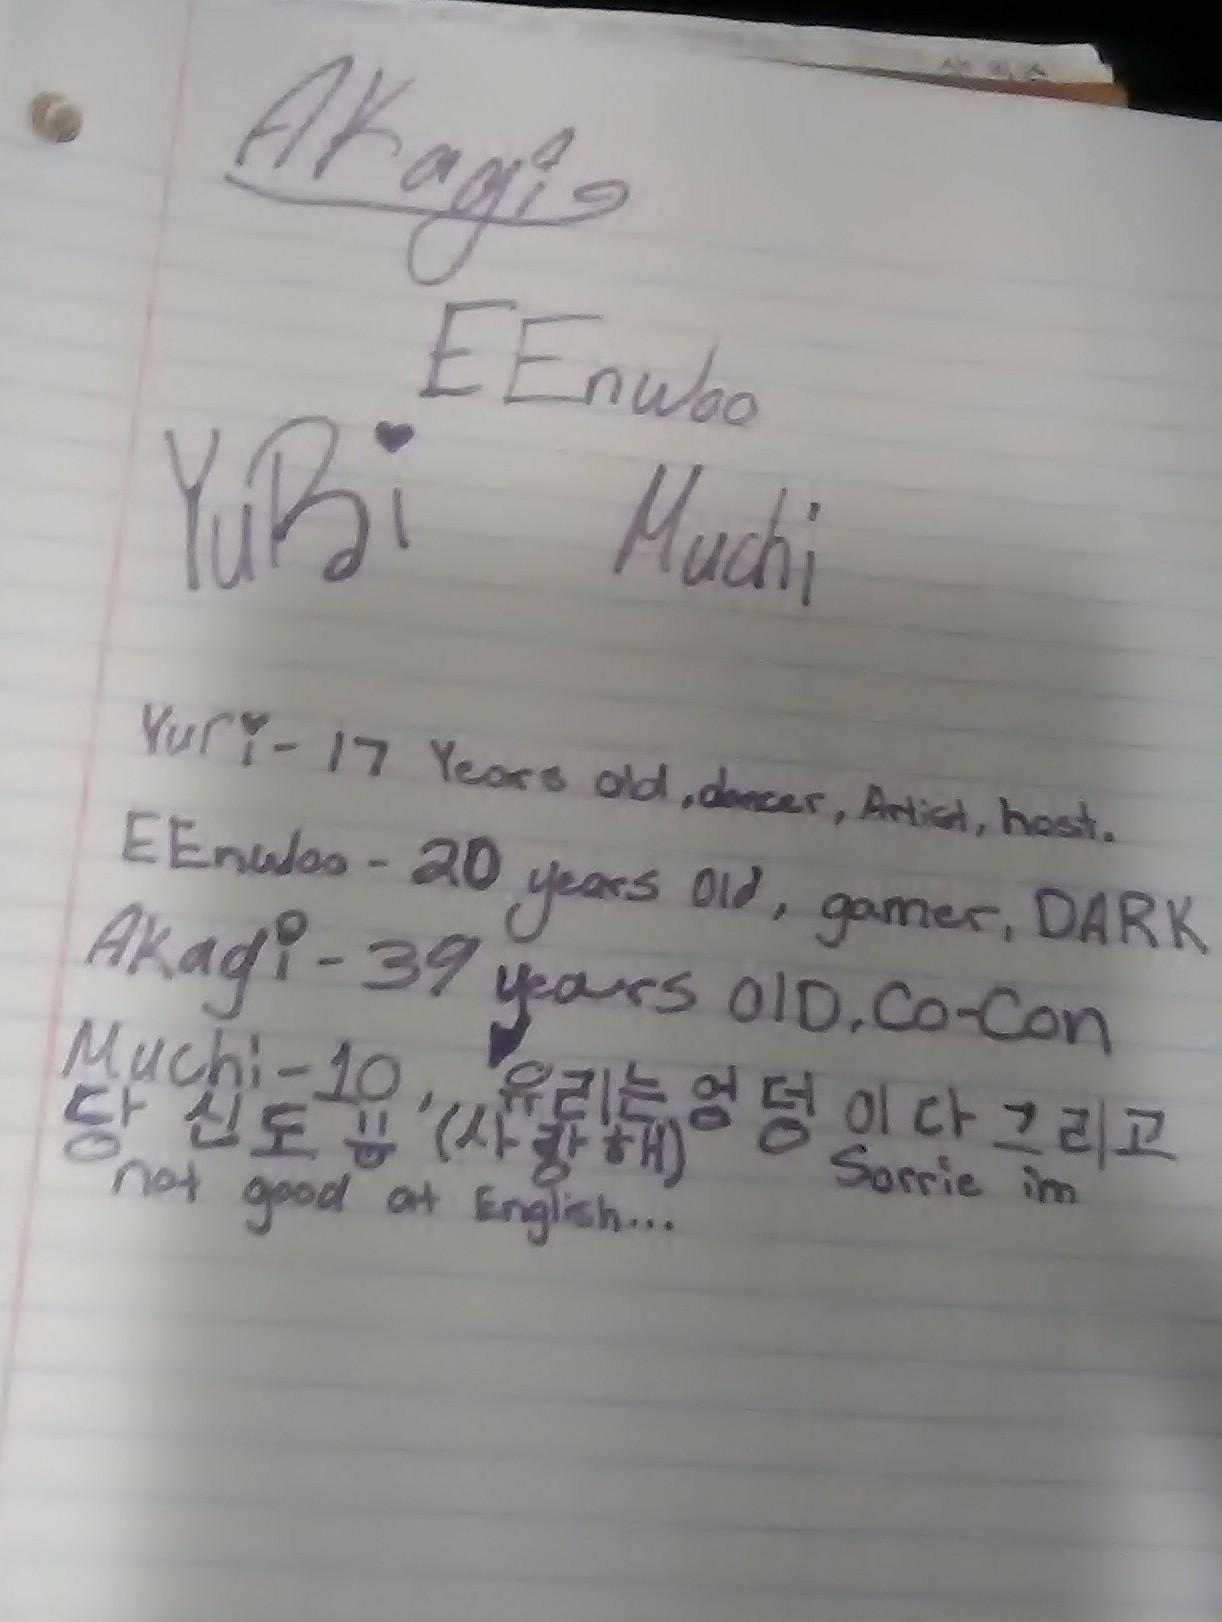 AKagi
EEnwoo
YuRi Muchi
Yuri - 17 Years old, dancer, Artist, host.
EEnwoo - 20 years old, gamer, DARK
AKagi - 39 years OlD, Co-Con
Muchi - 10, 유리는 엉덩이다 그리고
당신도 (사랑해) Sorrie im
not good at English...